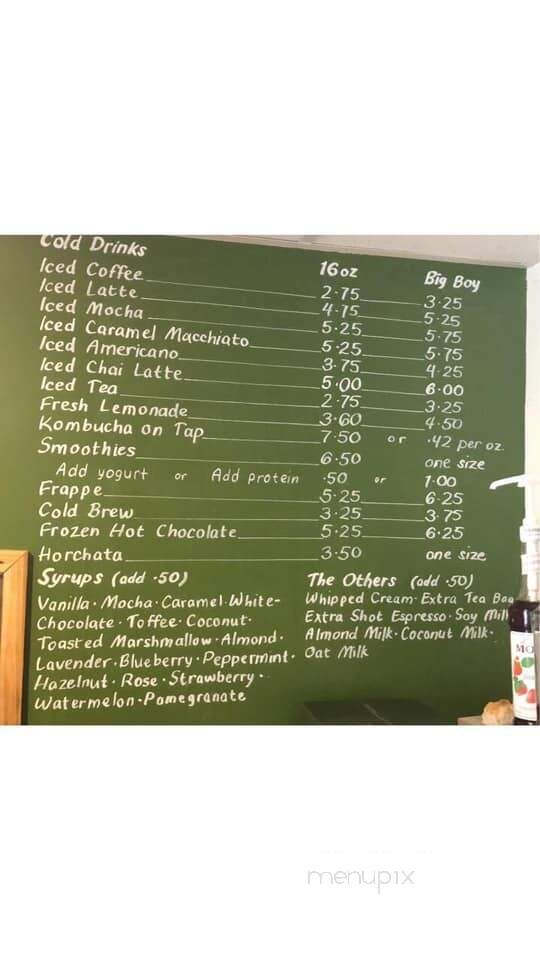 Cold Drinks
16oz Big Boy
Iced Coffee 2.75 3.25
Iced Latte 4.75 5.25
Iced Mocha 5.25 5.75
Iced Caramel Macchiato 5.25 5.75
Iced Americano 3.75 4.25
Iced Chai Latte 5.00 6.00
Iced Tea 2.75 3.25
Fresh Lemonade 3.60 4.50
Kombucha on Tap 7.50 or .42 per oz.
Smoothies 6.50 one size
Add yogurt or Add protein .50 or 1.00
Frappe 5.25 6.25
Cold Brew 3.25 3.75
Frozen Hot Chocolate 5.25 6.25
Horchata 3.50 one size
Syrups (add .50)
Vanilla · Mocha · Caramel · White-
Chocolate · Toffee · Coconut ·
Toasted Marshmallow · Almond ·
Lavender · Blueberry · Peppermint ·
Hazelnut · Rose · Strawberry ·
Watermelon · Pomegranate
The Others (add .50)
Whipped Cream · Extra Tea Bag
Extra Shot Espresso · Soy Milk
Almond Milk · Coconut Milk ·
Oat Milk
MO
menupix